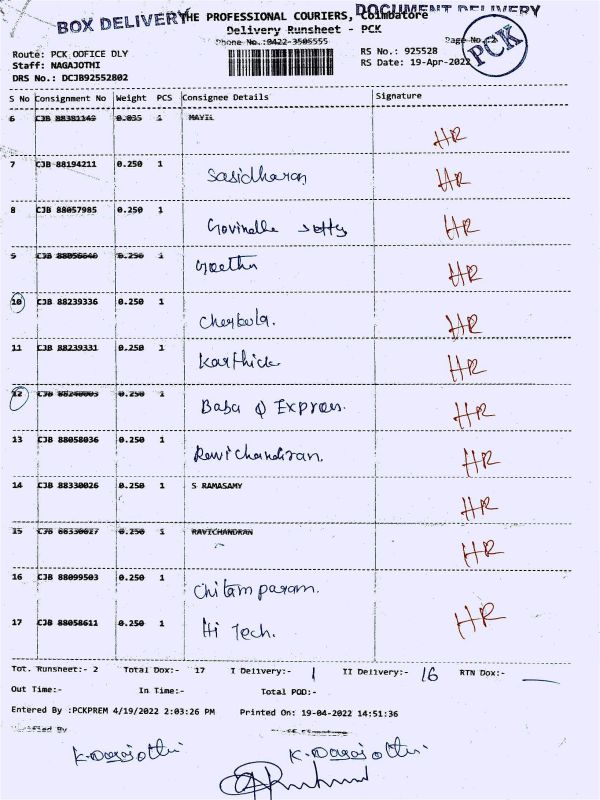 BOX DELIVERY THE PROFESSIONAL COURIERS, Coimbatore DOCUMENT DELIVERY
Delivery Runsheet - PCK
Phone No.:0422-3505555 Page No.:2
PCK
Route: PCK OOFICE DLY RS No.: 925528
Staff: NAGAJOTHI RS Date: 19-Apr-2022
DRS No.: DCJB92552802
S No Consignment No Weight PCS Consignee Details Signature
6 CJB 88381149 0.035 1 MAYIL HR
7 CJB 88194211 0.250 1 Sasidharan HR
8 CJB 88057985 0.250 1 HR
9 CJB 88056640 0.250 1 Geetha HR
10 CJB 88239336 0.250 1 HR
11 CJB 88239331 0.250 1 Karthick HR
12 CJB 88240003 0.250 1 Baba Express. HR
13 CJB 88058036 0.250 1 Ravichandiran. HR
14 CJB 88330026 0.250 1 S RAMASAMY HR
15 CJB 88330027 0.250 1 RAVICHANDRAN HR
16 CJB 88099503 0.250 1 Chitamparam.
17 CJB 88058611 0.250 1 Hi Tech. HR
Tot. Runsheet:- 2 Total Dox:- 17 I Delivery:- 1 II Delivery:- 16 RTN Dox:-
Out Time:- In Time:- Total POD:-
Entered By :PCKPREM 4/19/2022 2:03:26 PM Printed On: 19-04-2022 14:51:36